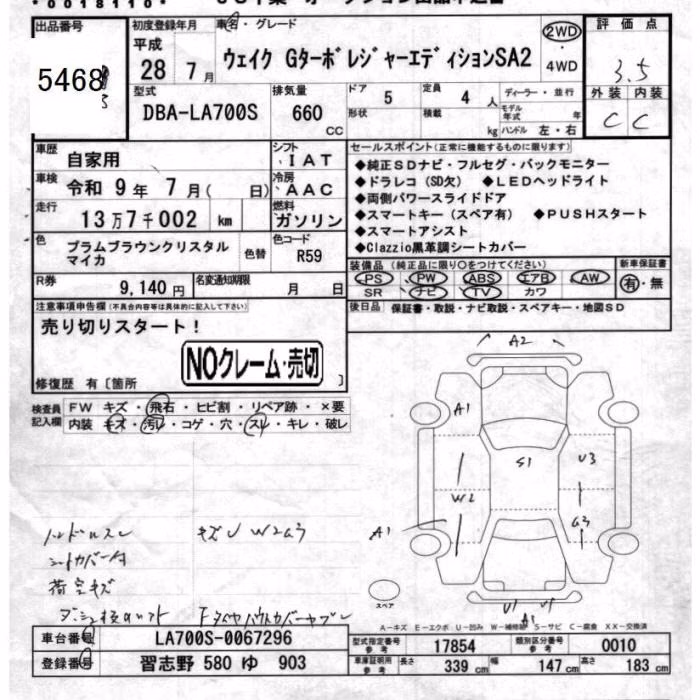 出品番号 初度登録年月 車名・グレード 評価点
5468 平成 28年 7月 ウェイク Gターボレジャーエディション SA2 2WD・4WD 3.5
外装 内装
C C
型式 排気量 ドア 定員 ディーラー・並行
DBA-LA700S 660CC 5 4人
形状 積載 kg モデル年式 年
ハンドル 左・右
車歴 自家用 シフト IAT
車検 令和 9年 7月( 日) 冷房 AAC
走行 13万7千002 km 燃料 ガソリン
色 プラムブラウンクリスタルマイカ 色替 色コード R59
R券 9,140円 名変通知期限 月 日
セールスポイント(正常に機能するものに限ります)
◆純正SDナビ・フルセグ・バックモニター
◆ドラレコ(SD欠) ◆LEDヘッドライト
◆両側パワースライドドア
◆スマートキー(スペア有) ◆PUSHスタート
◆スマートアシスト
◆Clazzio黒革調シートカバー
装備品(純正品に限り○をつけてください) 新車保証書
PS PW ABS エアB AW 有・無
SR ナビ TV カワ
後日品 保証書・取説・ナビ取説・スペアキー・地図SD
注意事項申告欄(不具合内容等は具体的に記入して下さい)
売り切りスタート!
NOクレーム・売切
修復歴 有〔箇所 〕
検査員記入欄 FW キズ・飛石・ヒビ割・リペア跡・×要
内装 キズ・汚レ・コゲ・穴・スレ・キレ・破レ
A2
A1
S1 U3
W2
A1 G3
ハンドルスレ キズU W2G3
シートカバー付
荷室キズ
スペア
U1 U1
A1
A-キズ E-エクボ U-凹み W-補修跡 S-サビ C-腐食 XX-交換済
車台番号 LA700S-0067296
登録番号 習志野 580 ゆ 903
型式指定番号 参考 17854 類別区分番号 参考 0010
車庫証明用 参考 長さ 339cm 幅 147cm 高さ 183cm